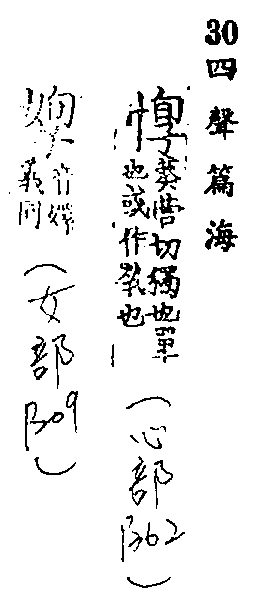 30 四聲篇海
惸葵營切獨也單
也或作煢也
(心部 B62)
義同
(女部 B09)